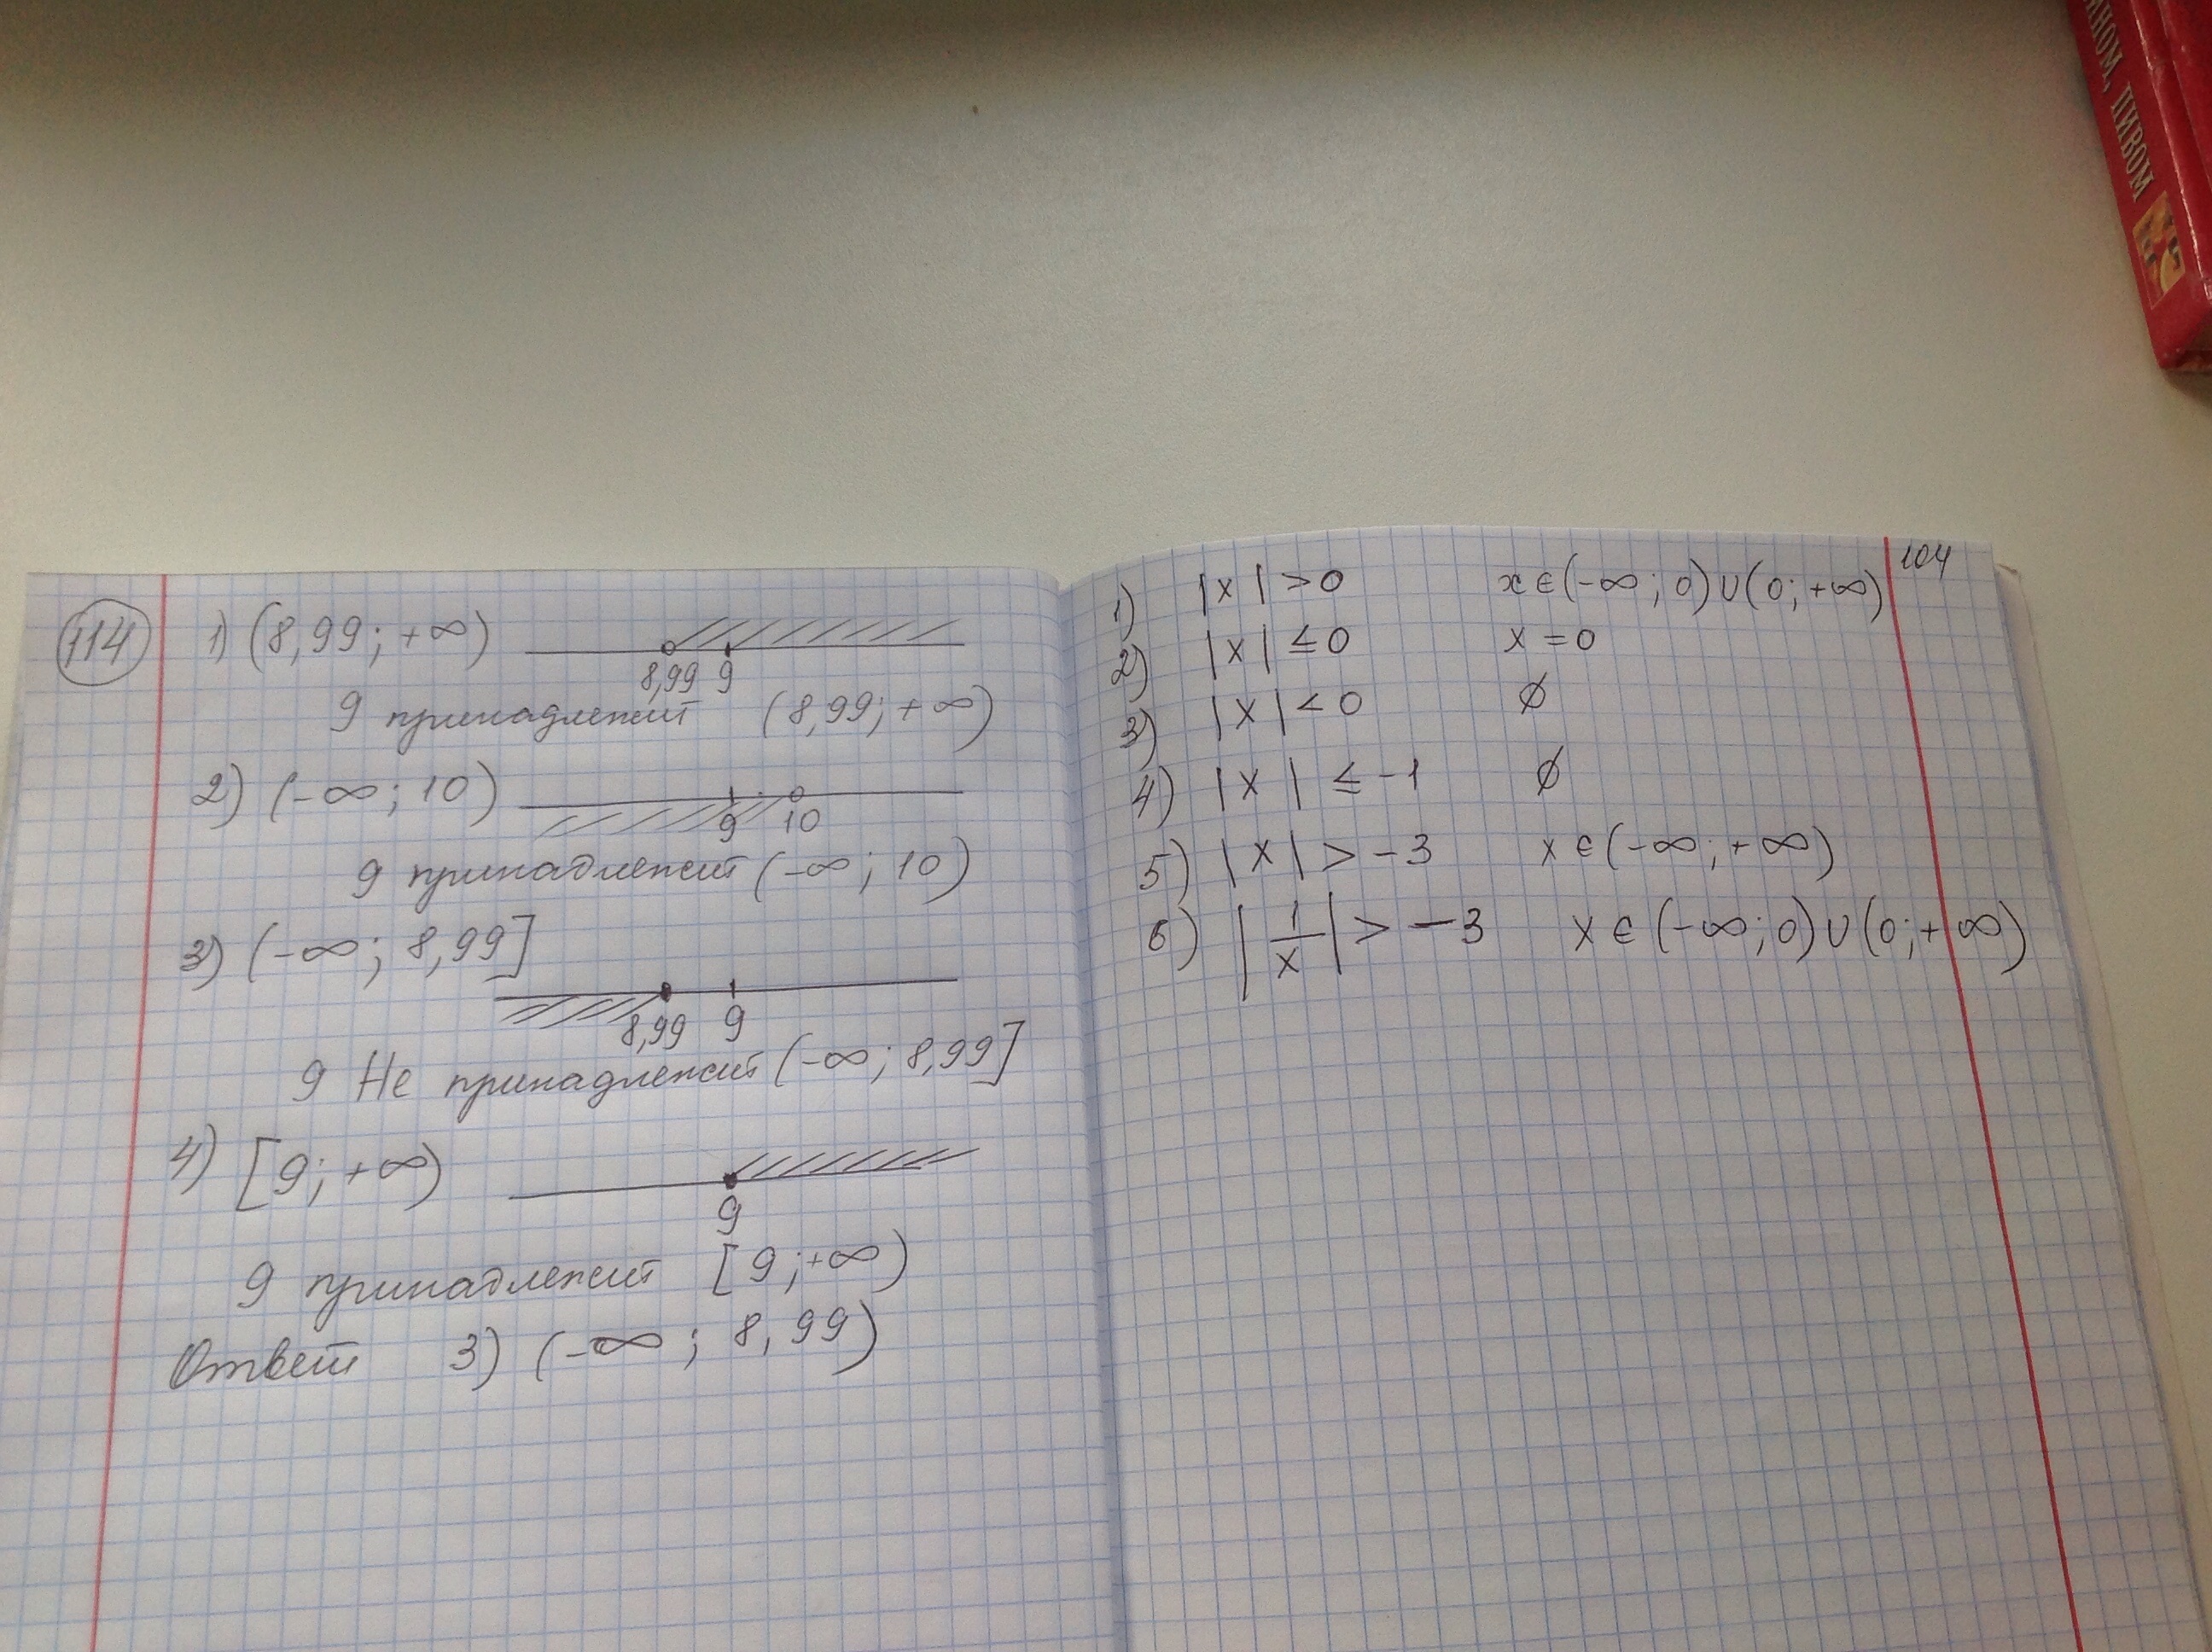 114
1) (8,99; +∞)
8,99 9
9 принадлежит (8,99; +∞)
2) (-∞; 10)
9 10
9 принадлежит (-∞; 10)
3) (-∞; 8,99]
8,99 9
9 Не принадлежит (-∞; 8,99]
4) [9; +∞)
9
9 принадлежит [9; +∞)
Ответ 3) (-∞; 8,99)
104
1) |x| > 0 x ∈ (-∞; 0) ∪ (0; +∞)
2) |x| ≤ 0 x = 0
3) |x| < 0 ∅
4) |x| ≤ -1 ∅
5) |x| > -3 x ∈ (-∞; +∞)
6) |1/x| > -3 x ∈ (-∞; 0) ∪ (0; +∞)
ПИВОМ